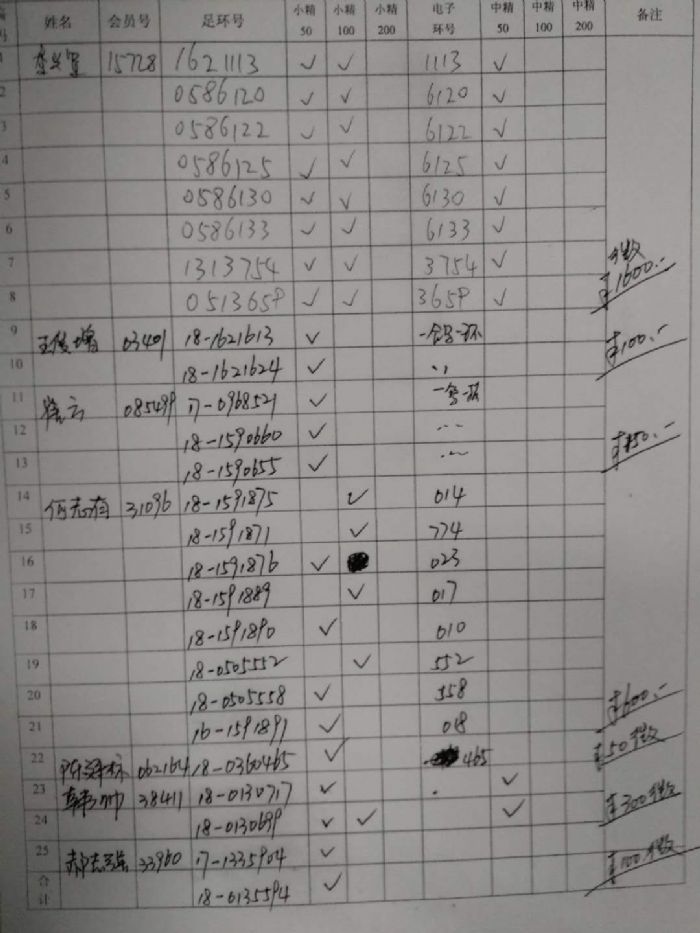 编号 姓名 会员号 足环号 小精50 小精100 小精200 电子环号 中精50 中精100 中精200 备注
1 15728 1621113 ✓ ✓ 1113 ✓
2 0586120 ✓ ✓ 6120 ✓
3 0586122 ✓ ✓ 6122 ✓
4 0586125 ✓ ✓ 6125 ✓
5 0586130 ✓ ✓ 6130 ✓
6 0586133 ✓ ✓ 6133 ✓
7 1313754 ✓ ✓ 3754 ✓
8 0513658 ✓ ✓ 3658 ✓ ¥1600.-
9 王俊增 03401 18-1621613 ✓ ¥100.-
10 18-1621624 ✓
11 085499 17-0968521 ✓
12 18-1590660 ✓
13 18-1590655 ✓ ¥150.-
14 何志有 31096 18-1591875 ✓ 014
15 18-1591871 ✓ 774
16 18-1591876 ✓ 023
17 18-1591889 ✓ 017
18 18-1591890 ✓ 010
19 18-0505552 ✓ 552
20 18-0505558 ✓ 558 ¥600.-
21 16-1591891 ✓ 018
22 062164 18-0360465 ✓ 465 ¥50
23 38411 18-0130717 ✓ ✓
24 18-0130699 ✓ ✓ ✓ ¥300
25 33960 17-1335904 ✓ ¥100
合计 18-0135594 ✓